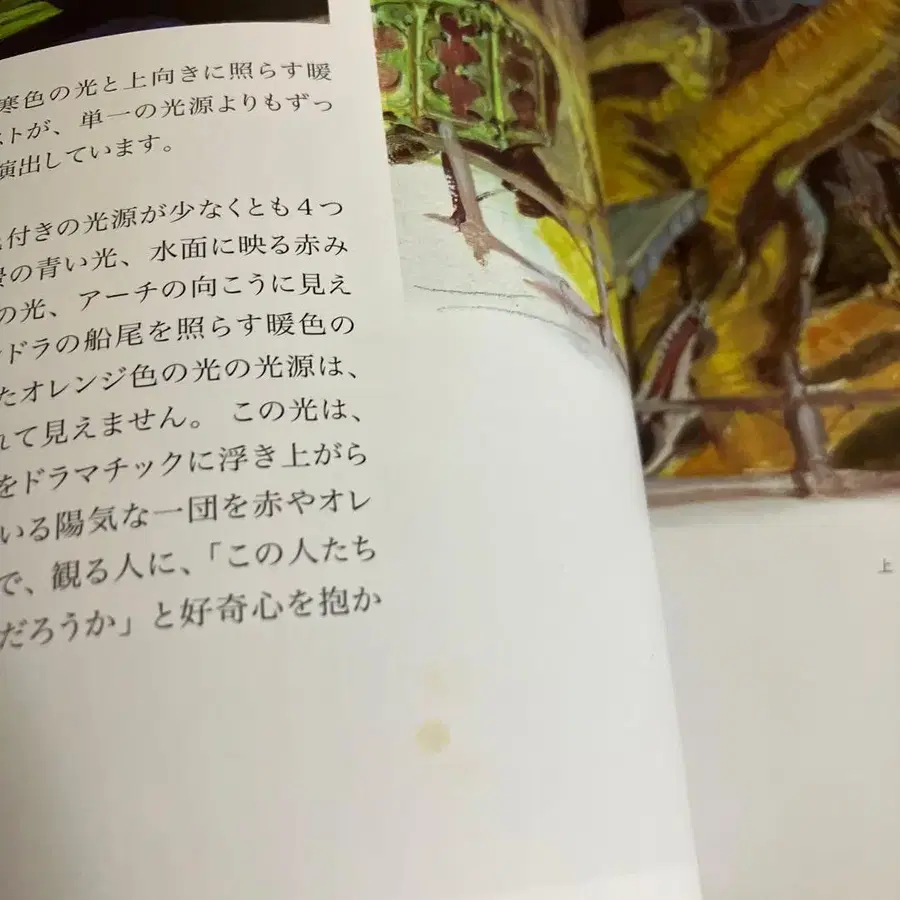 寒色の光と上向きに照らす暖
ストが、単一の光源よりもずっ
演出しています。
付きの光源が少なくとも４つ
景の青い光、水面に映る赤み
の光、アーチの向こうに見え
ンドラの船尾を照らす暖色の
たオレンジ色の光の光源は、
れて見えません。この光は、
をドラマチックに浮き上がら
いる陽気な一団を赤やオレ
で、観る人に、「この人たち
だろうか」と好奇心を抱か
上